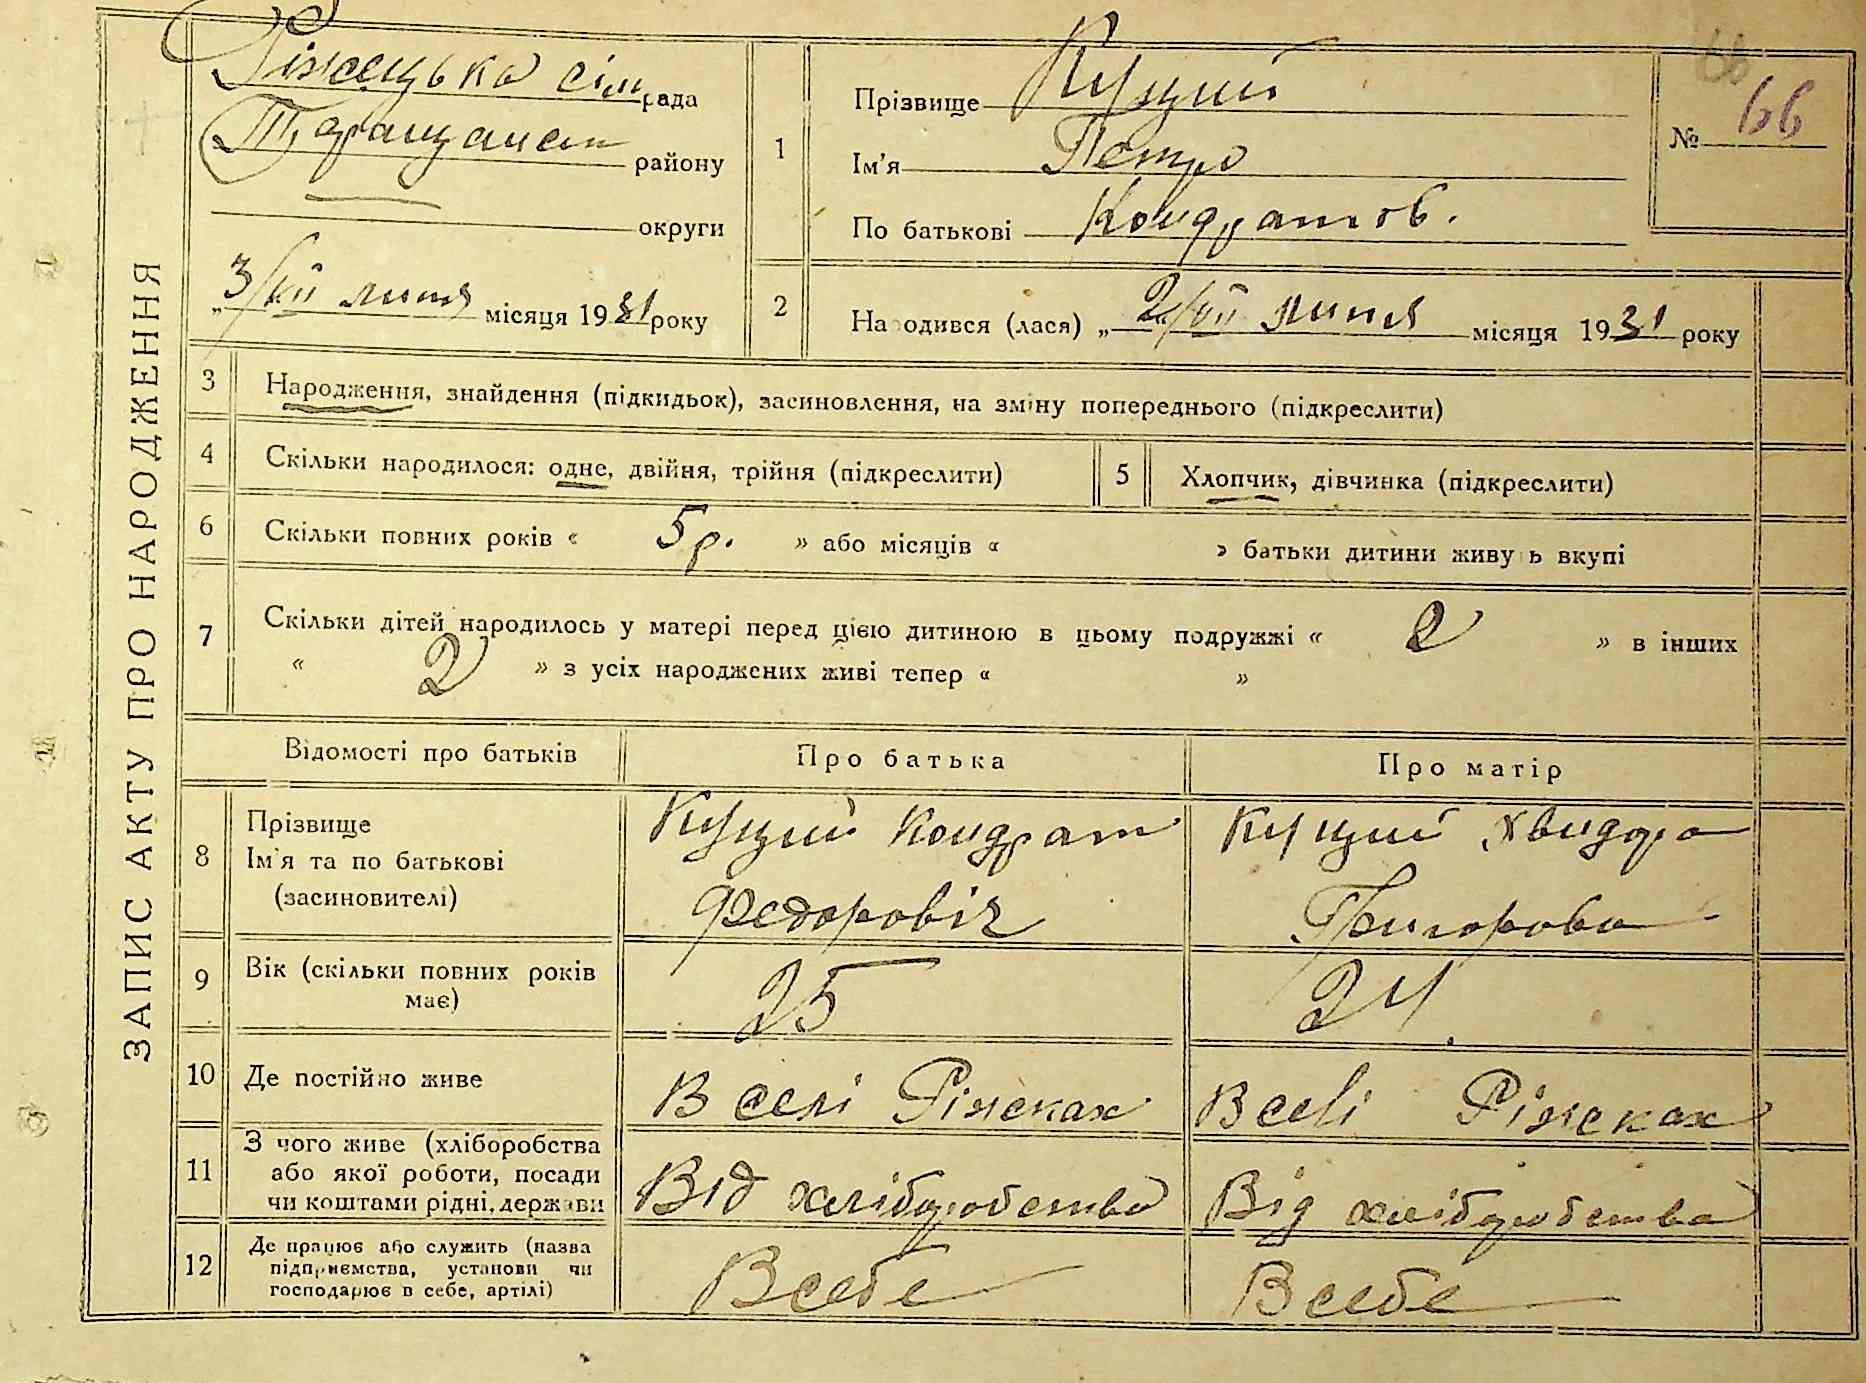 ЗАПИС АКТУ ПРО НАРОДЖЕННЯ
Ріжецька сіл рада
Таращанськ району
округи
„3/VII липня місяця 1931 року
1
Прізвище Куций
Ім'я Петро
По батькові Кондратов.
66
№ 66
2
Народився (лася) „2/VII липня місяця 1931 року
3 Народження, знайдення (підкидьок), засиновлення, на зміну попереднього (підкреслити)
4 Скільки народилося: одне, двійня, трійня (підкреслити)
5 Хлопчик, дівчинка (підкреслити)
6 Скільки повних років « 5 р. » або місяців « » батьки дитини живуть вкупі
7 Скільки дітей народилось у матері перед цією дитиною в цьому подружжі « 2 » в інших
« 2 » з усіх народжених живі тепер « »
Відомості про батьків Про батька Про матір
8 Прізвище
Ім'я та по батькові
(засиновителі)
Куций Кондрат
Федоровіч
Куций Хвидора
Григорова
9 Вік (скільки повних років
має)
25
24.
10 Де постійно живе
В селі Ріжках
В селі Ріжках
11 З чого живе (хліборобства
або якої роботи, посади
чи коштами рідні, держави
Від хліборобства
Від хліборобства
12 Де працює або служить (назва
підприємства, установи чи
господарює в себе, артілі)
В себе
В себе